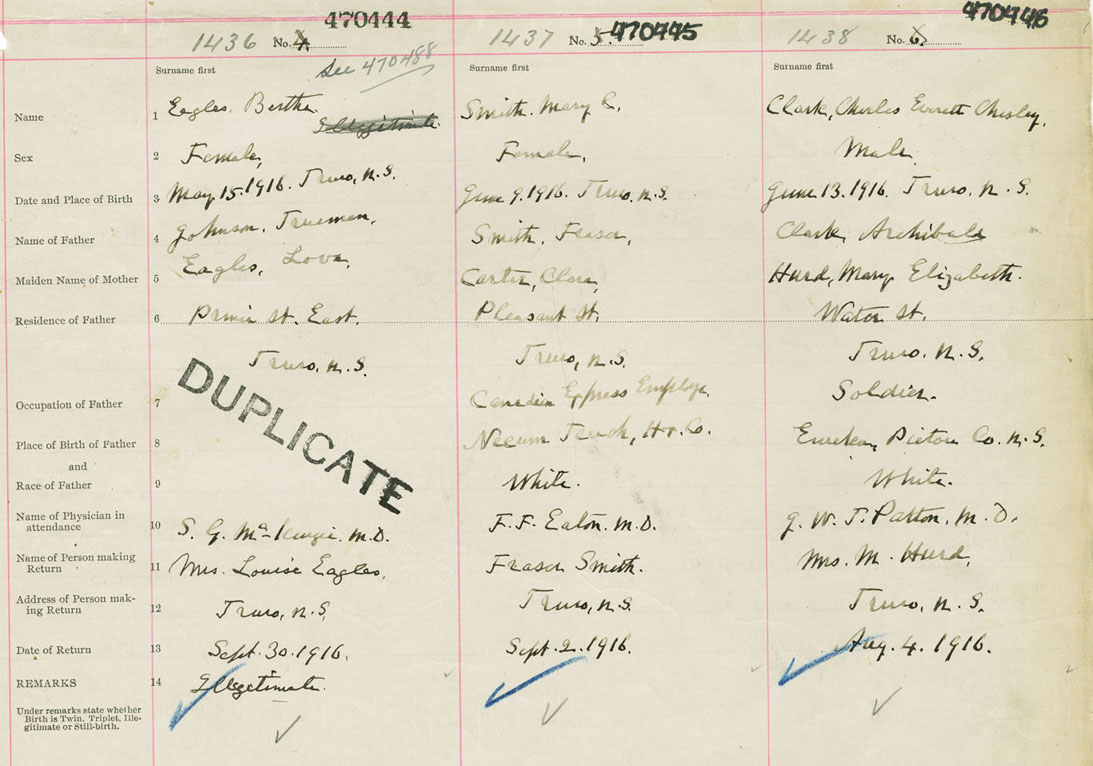 470444 470445 470446
1436 No. 4. 1437 No. 5. 1438 No. 6.
See 470488
Surname first Surname first Surname first
Name 1 Eagles. Bertha. Smith. Mary C. Clark, Charles Everett Chesley.
Illegitimate
Sex 2 Female, Female, Male.
Date and Place of Birth 3 May 15. 1916. Truro, N.S. June 9. 1916. Truro, N.S. June 13. 1916. Truro, N.S.
Name of Father 4 Johnson, Trueman, Smith, Fraser, Clark, Archibald
Maiden Name of Mother 5 Eagles, Carter, Clara, Hurd, Mary Elizabeth.
Residence of Father 6 Prince St. East. Pleasant St. Water St.
Truro, N.S. Truro, N.S. Truro. N.S.
DUPLICATE
Occupation of Father 7 Canadian Express Employe, Soldier.
Place of Birth of Father 8 Co. Eureka, Pictou Co. N.S.
and
Race of Father 9 White. White.
Name of Physician in
attendance 10 S. G. McKenzie. M.D. F. F. Eaton. M.D. J. W. T. Patton, M.D.
Name of Person making
Return 11 Mrs. Louise Eagles, Fraser Smith. Mrs. M. Hurd,
Address of Person mak-
ing Return 12 Truro, N.S. Truro, N.S. Truro, N.S.
Date of Return 13 Sept. 30. 1916. Sept. 2. 1916. Aug. 4. 1916.
REMARKS 14 Illegitimate.
Under remarks state whether
Birth is Twin, Triplet, Ille-
gitimate or Still-birth.